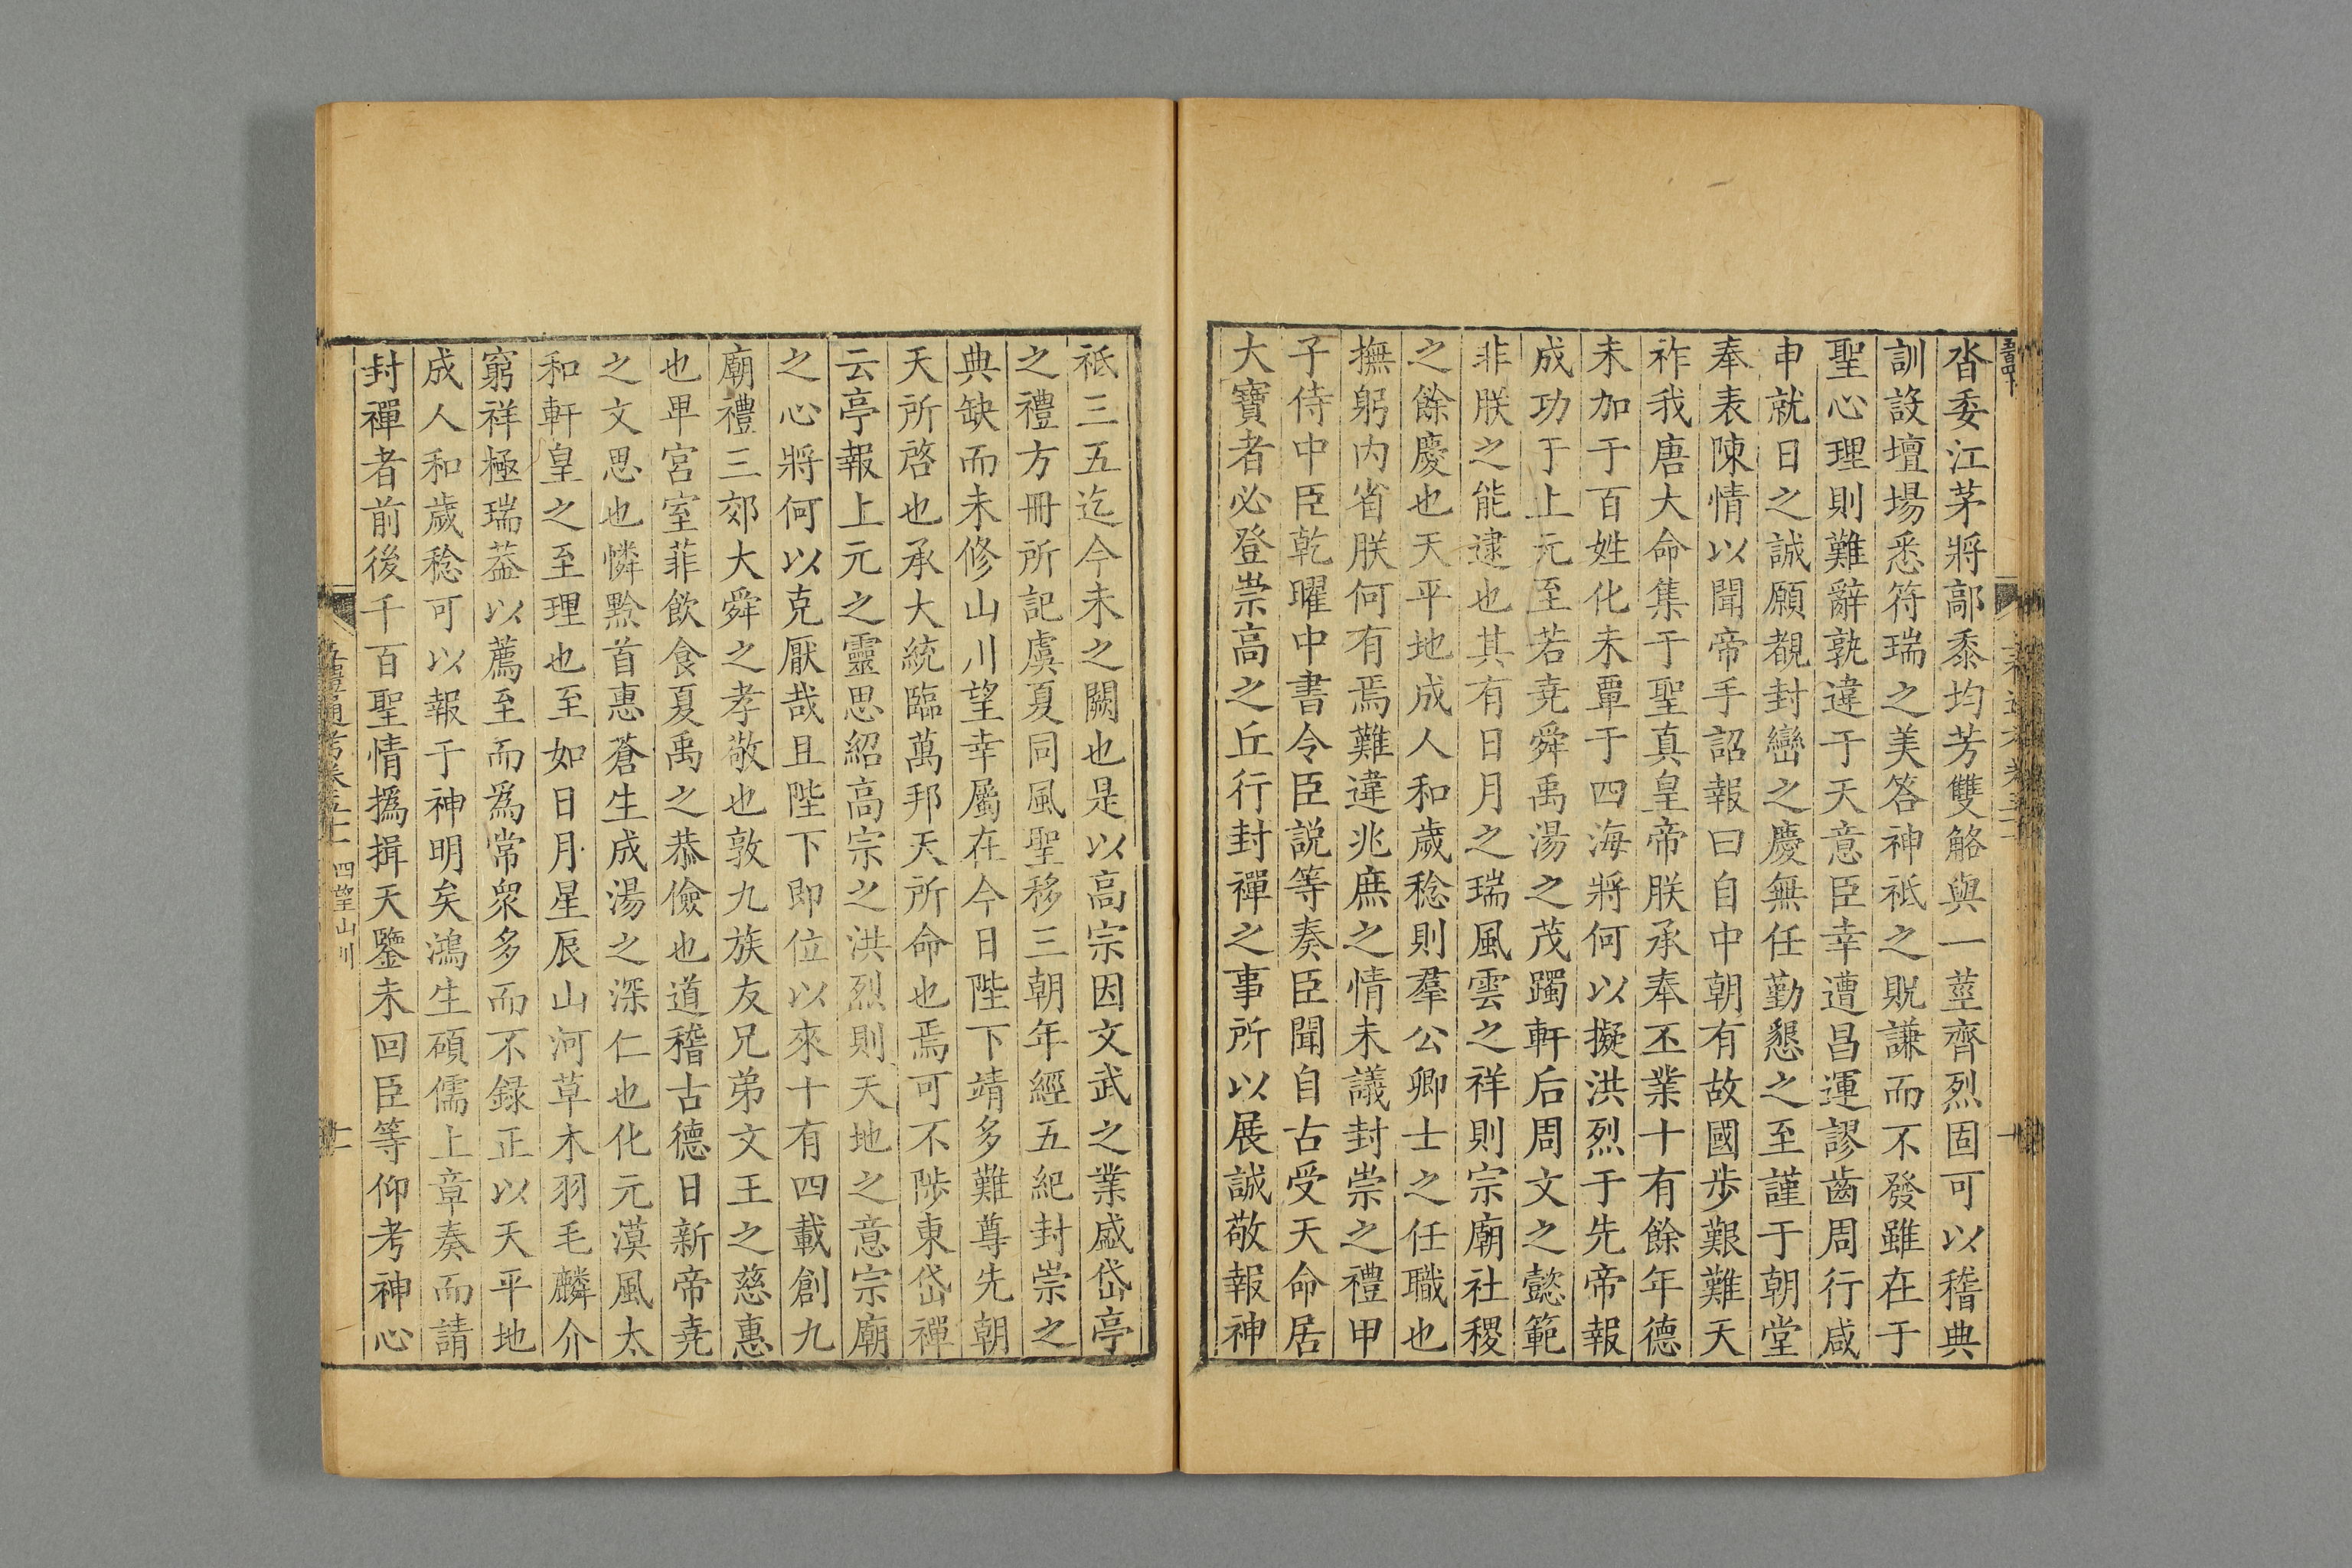 沓委江茅將鄗黍均芳雙觡與一莖齊烈固可以稽典
訓設壇場悉符瑞之美答神祇之貺謙而不發雖在于
聖心理則難辭孰違于天意臣幸遭昌運謬齒周行咸
申就日之誠願覩封巒之慶無任勤懇之至謹于朝堂
奉表陳情以聞帝手詔報曰自中朝有故國歩艱難天
祚我唐大命集于聖真皇帝朕承奉丕業十有餘年德
未加于百姓化未覃于四海將何以擬洪烈于先帝報
成功于上元至若堯舜禹湯之茂躅軒后周文之懿範
非朕之能逮也其有日月之瑞風雲之祥則宗廟社稷
之餘慶也天平地成人和歲稔則羣公卿士之任職也
撫躬内省朕何有焉難違兆庶之情未議封崇之禮甲
子侍中臣乾曜中書令臣説等奏臣聞自古受天命居
大寶者必登崇高之丘行封禪之事所以展誠敬報神
祇三五迄今未之闕也是以高宗因文武之業盛岱亭
之禮方冊所記虞夏同風聖移三朝年經五紀封崇之
典缺而未修山川望幸屬在今日陛下靖多難尊先朝
天所啓也承大統臨萬邦天所命也焉可不陟東岱禪
云亭報上元之靈思紹高宗之洪烈則天地之意宗廟
之心將何以克厭哉且陛下即位以來十有四載創九
廟禮三郊大舜之孝敬也敦九族友兄弟文王之慈惠
也卑宮室菲飲食夏禹之恭儉也道稽古德日新帝堯
之文思也憐黔首惠蒼生成湯之深仁也化元漠風太
和軒皇之至理也至如日月星辰山河草木羽毛麟介
窮祥極瑞葢以薦至而爲常衆多而不録正以天平地
成人和歲稔可以報于神明矣鴻生碩儒上章奏而請
封禪者前後千百聖情撝揖天鑒未回臣等仰考神心
五禮通考卷五十 四望山川